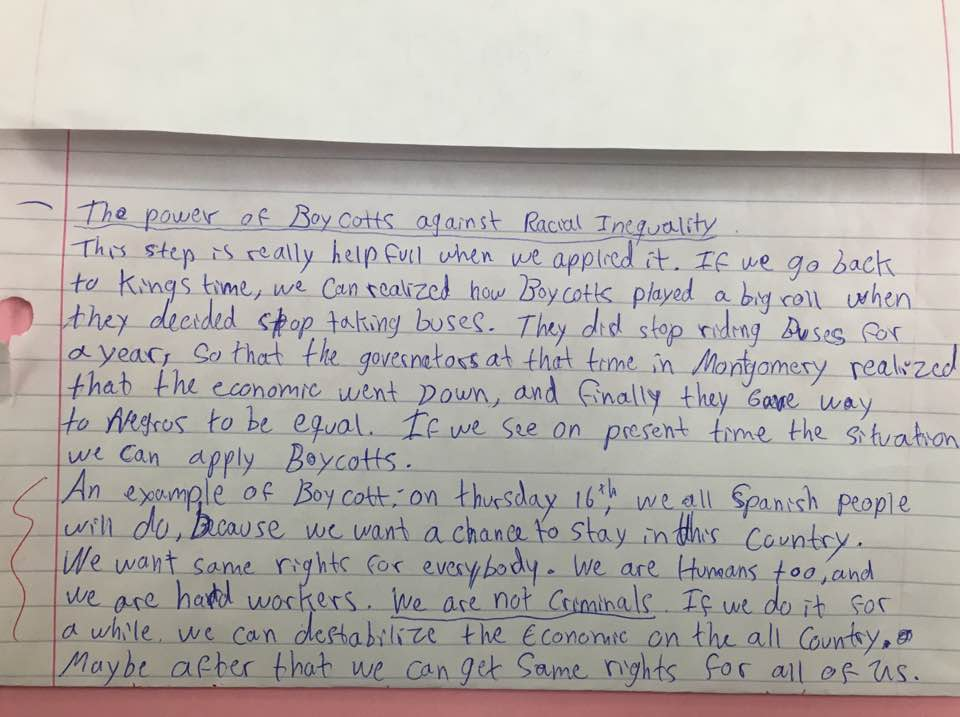 The power of Boycotts against Racial Inequality.
This step is really help full when we applied it. If we go back
to Kings time, we can realized how Boycotts played a big roll when
they decided stop taking buses. They did stop riding Buses for
a year, so that the governators at that time in Montgomery realized
that the economic went Down, and finally they Gave way
to Negros to be equal. If we see on present time the situation
we can apply Boycotts.
An example of Boycott: on thursday 16th, we all Spanish people
will do, Because we want a chance to stay in this Country.
We want same rights for everybody. We are Humans too, and
we are hard workers. We are not Criminals. If we do it for
a while, we can destabilize the Economic on the all Country.
Maybe after that we can get Same rights for all of us.